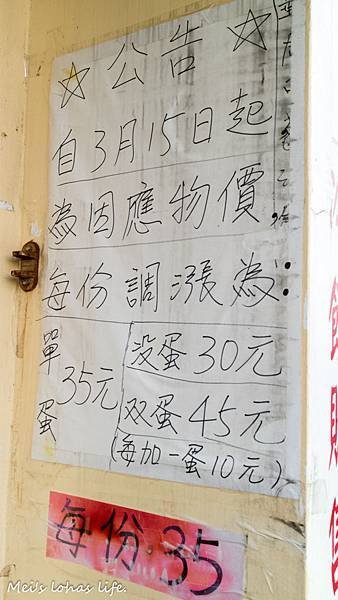 ☆公告☆
自3月15日起
為因應物價
每份調漲為:
單蛋 35元
没蛋30元
双蛋45元
(每加一蛋10元)
每份35
Mei's Lohas Life.